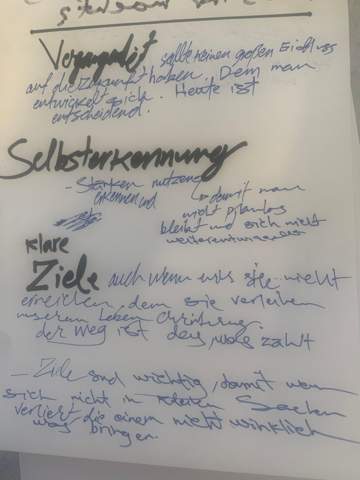 Vergangenheit sollte keinen großen Einfluss
auf die Zukunft haben. Dem man
entwickelt sich. Heute ist
entscheidend.
Selbsterkennung
- Stärken nutzen
erkennen und
damit man
nicht planlos
bleibt und sich nicht
Klare
Ziele auch wenn wir sie nicht
erreichen, dem sie verleihen
unserem Leben
der Weg ist das, was zählt
- Ziele sind wichtig, damit man
sich nicht in Sachen
verliert, die einem nicht wirklich
was bringen.